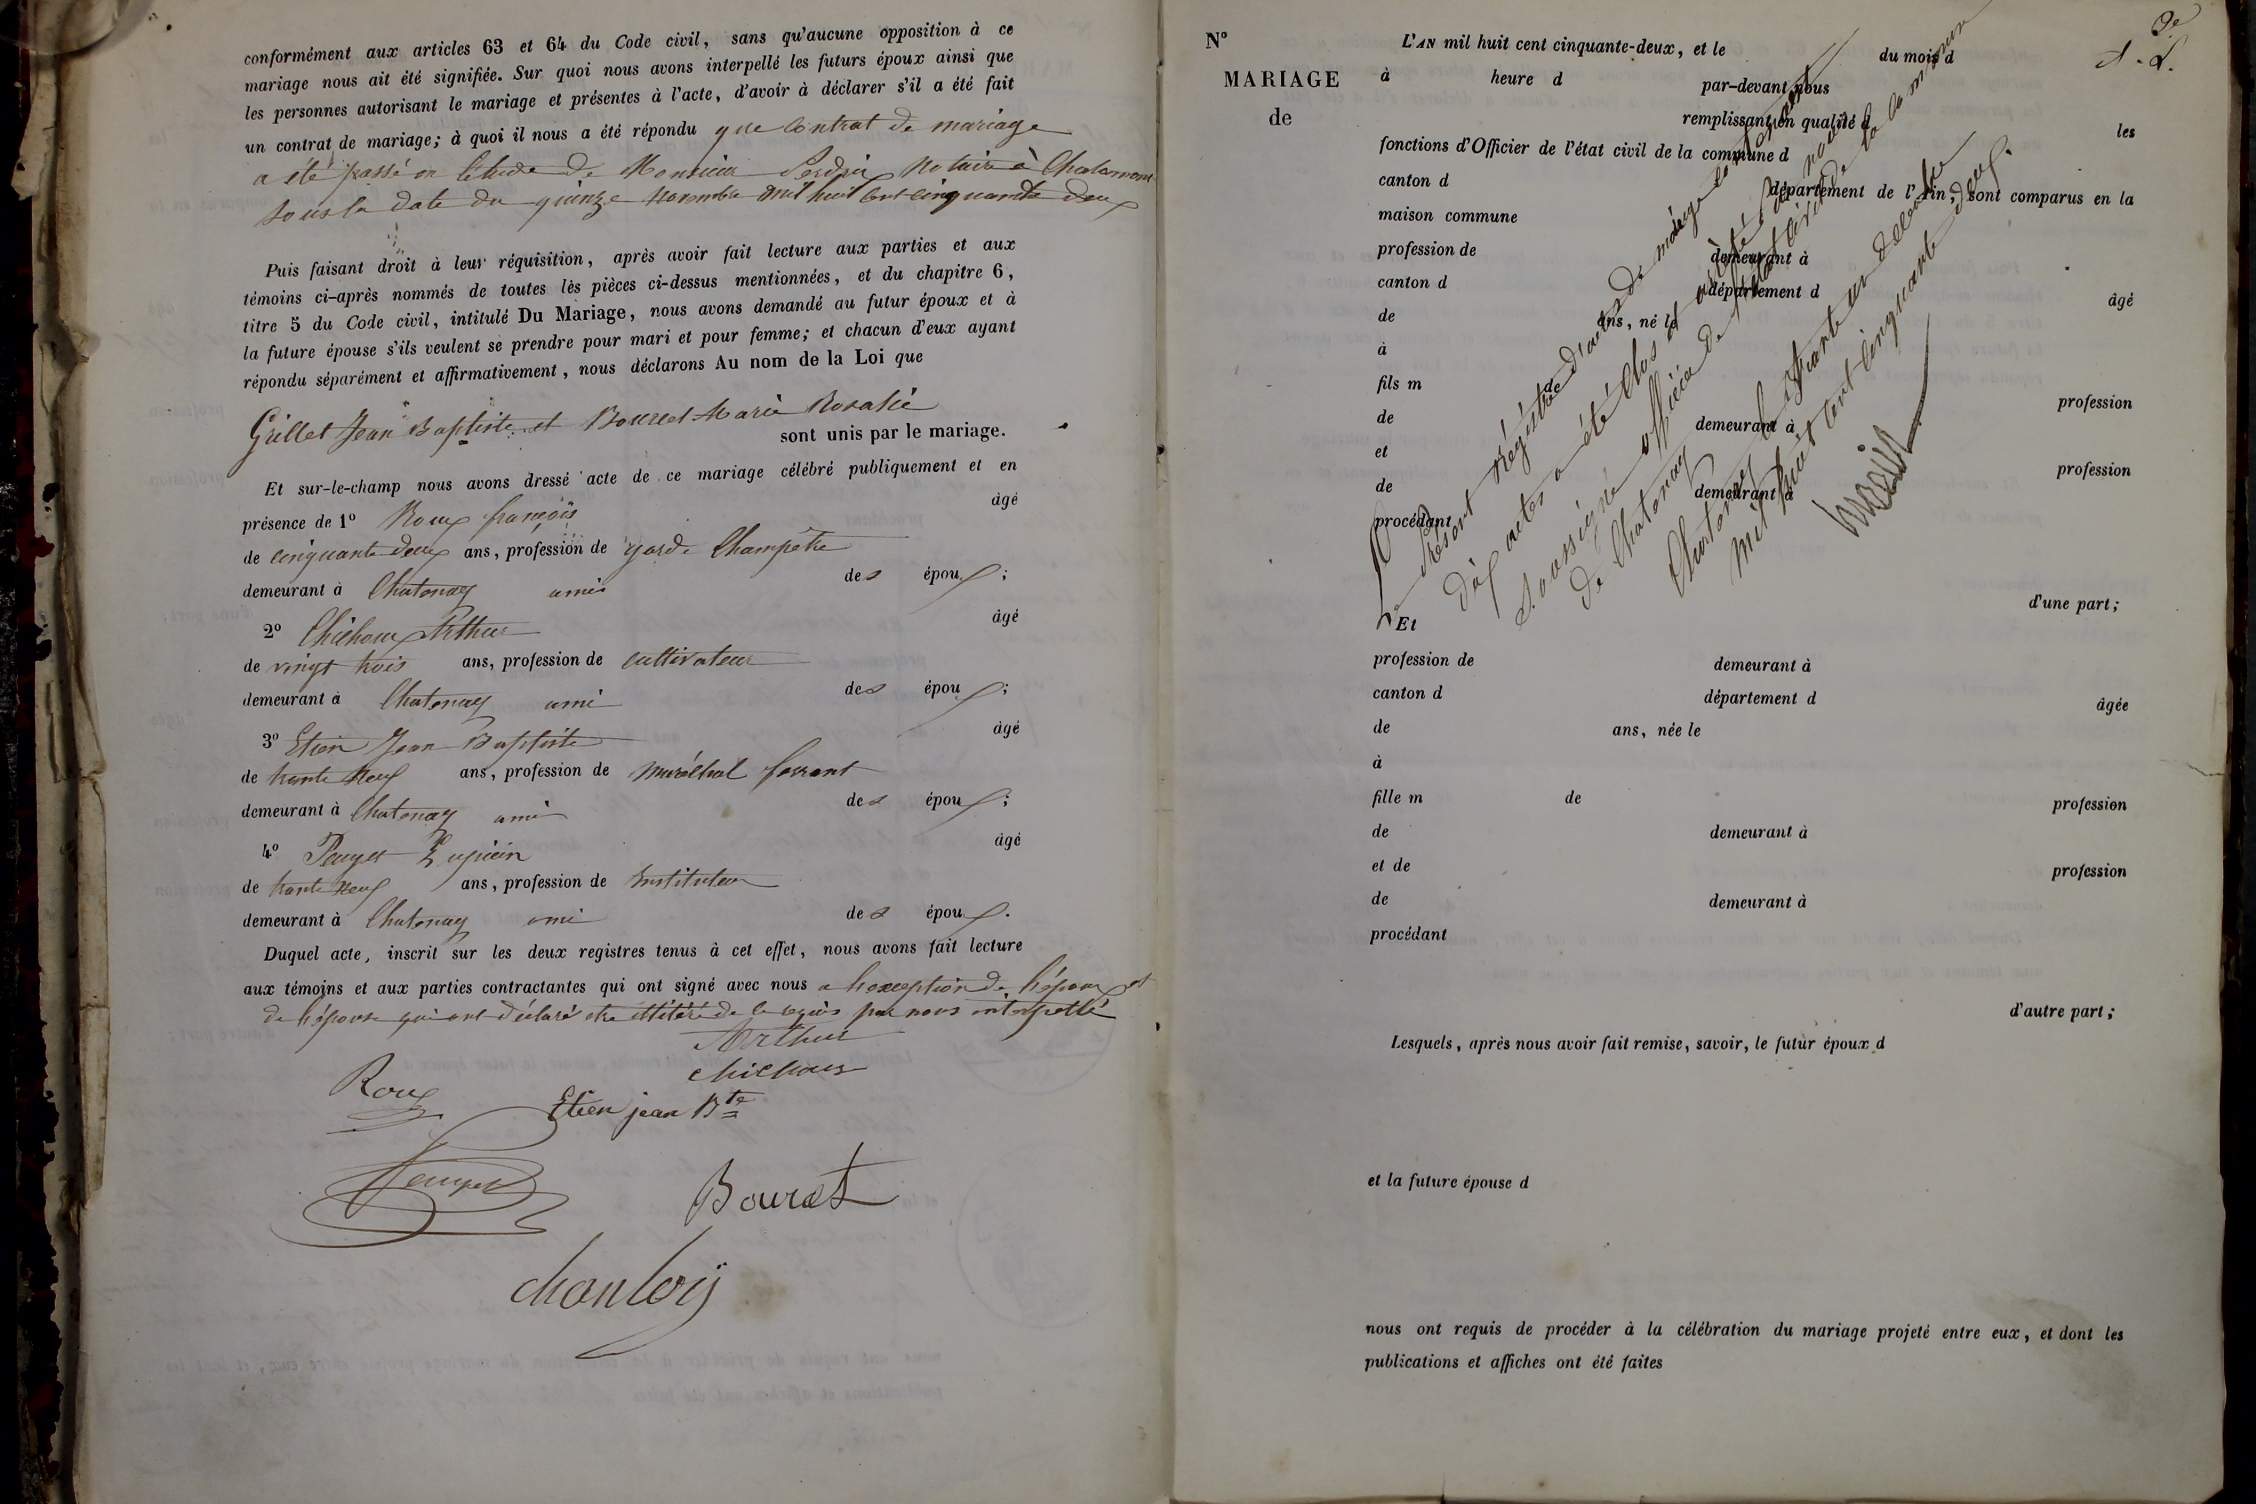 conformément aux articles 63 et 64 du Code civil, sans qu'aucune opposition à ce
mariage nous ait été signifiée. Sur quoi nous avons interpellé les futurs époux ainsi que
les personnes autorisant le mariage et présentes à l'acte, d'avoir à déclarer s'il a été fait
un contrat de mariage; à quoi il nous a été répondu que contrat de mariage
a été passé en l'étude de Monsieur notaire à Chalamont
sous la date du quinze novembre mil huit cent cinquante deux
Puis faisant droit à leur réquisition, après avoir fait lecture aux parties et aux
témoins ci-après nommés de toutes les pièces ci-dessus mentionnées, et du chapitre 6,
titre 5 du Code civil, intitulé Du Mariage, nous avons demandé au futur époux et à
la future épouse s'ils veulent se prendre pour mari et pour femme; et chacun d'eux ayant
répondu séparément et affirmativement, nous déclarons Au nom de la Loi que
Grillet Jean Baptiste et Bourcet Marie Rosalie
sont unis par le mariage.
Et sur-le-champ nous avons dressé acte de ce mariage célébré publiquement et en
présence de 1º Roux françois âgé
de cinquante deux ans, profession de garde Champêtre
demeurant à Chatenay ami des époux;
2º Chichoux Arthur âgé
de vingt trois ans, profession de cultivateur
demeurant à Chatenay ami des époux;
3º Etien Jean Baptiste âgé
de trente neuf ans, profession de maréchal ferrant
demeurant à Chatenay ami des époux;
4º Peuget âgé
de trente neuf ans, profession de instituteur
demeurant à Chatenay ami des époux.
Duquel acte, inscrit sur les deux registres tenus à cet effet, nous avons fait lecture
aux témoins et aux parties contractantes qui ont signé avec nous a l'exception de l'époux et
de l'épouse qui ont déclaré être de ce requis par nous interpellé
Arthur
chichoux
Roux
Etien jean Bte
Peuget
Bourcet
chanloy
Nº
MARIAGE
de
L'AN mil huit cent cinquante-deux, et le du mois d
à heure d par-devant nous
remplissant en qualité d les
fonctions d'Officier de l'état civil de la commune d
canton d département de l'Ain, sont comparus en la
maison commune
profession de demeurant à
canton d département d âgé
de ans, né le
à
fils m de
de demeurant à profession
et
de demeurant à profession
procédant
d'une part;
Et
profession de demeurant à
canton d département d âgée
de ans, née le
à
fille m de profession
de demeurant à
et de profession
de demeurant à
procédant
d'autre part;
Lesquels, après nous avoir fait remise, savoir, le futur époux d
et la future épouse d
nous ont requis de procéder à la célébration du mariage projeté entre eux, et dont les
publications et affiches ont été faites
Le Présent régistre d'actes de mariage
dix actes a été clos et arrêté par nous
soussigné officier de l'état civil de la commune
de Chatenay
Chatenay le trente un décembre
mil huit cent cinquante deux.